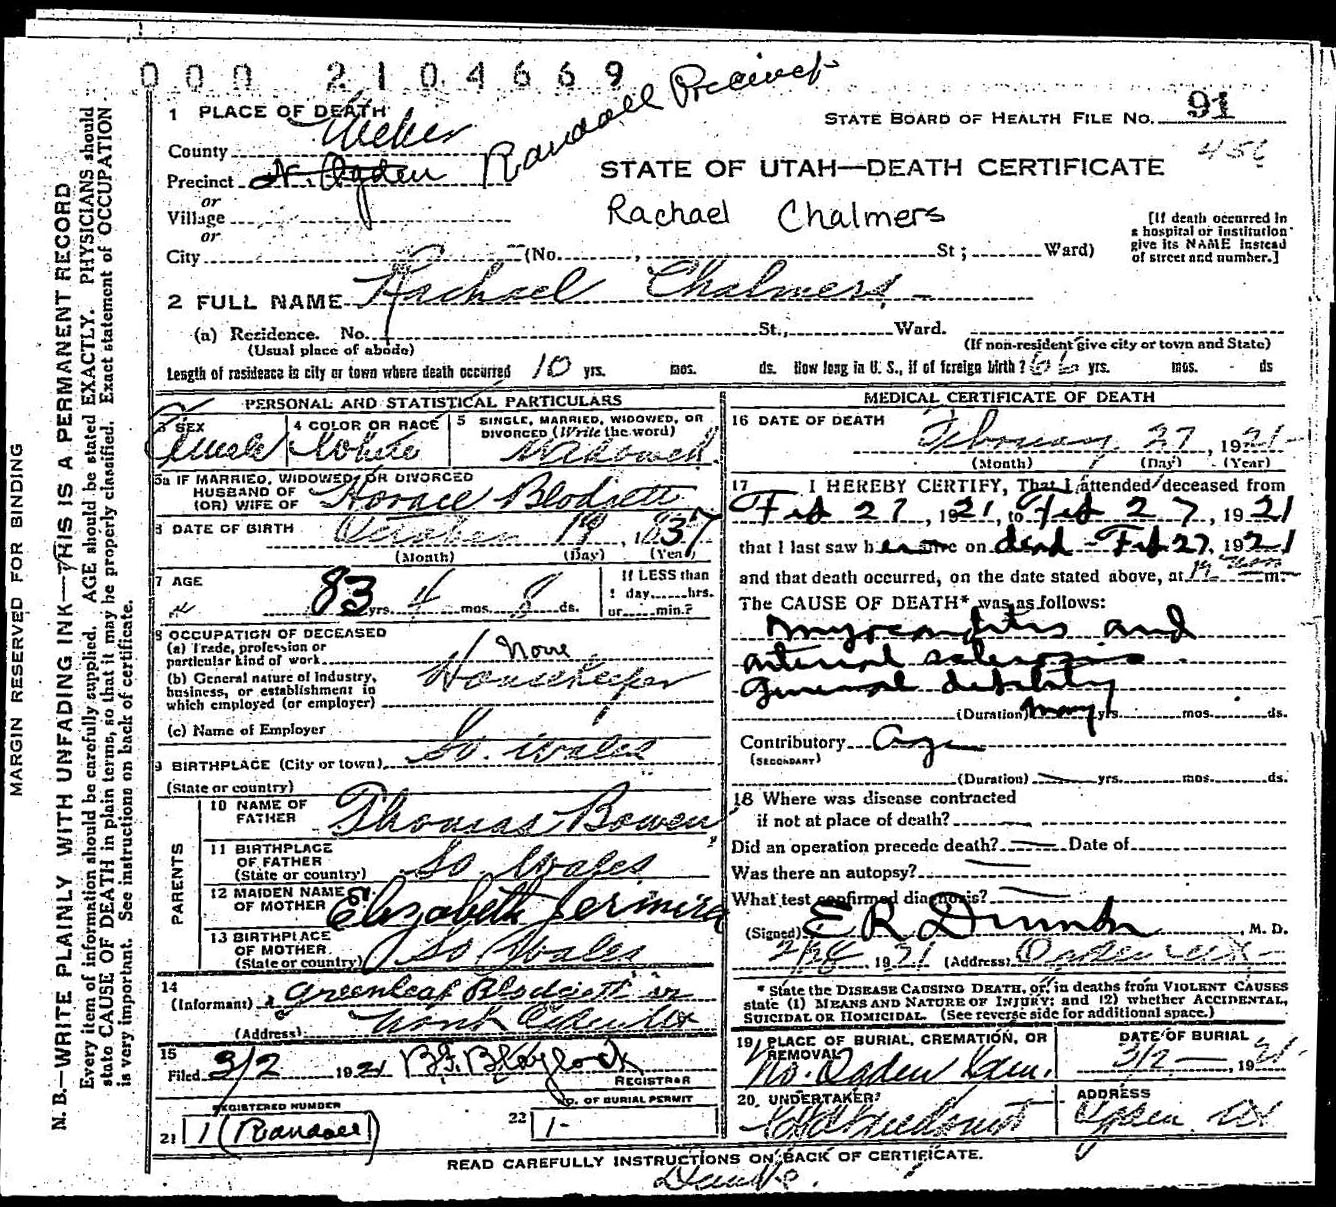 000 2104669
1 PLACE OF DEATH
County Weber
Randall Precinct
STATE BOARD OF HEALTH FILE No. 91
456
Precinct N. Ogden
STATE OF UTAH—DEATH CERTIFICATE
or
Village
Rachael Chalmers
or
City (No. , St; Ward)
[If death occurred in
a hospital or institution
give its NAME instead
of street and number.]
2 FULL NAME Rachael Chalmers
(a) Residence. No. St., Ward.
(Usual place of abode)
(If non-resident give city or town and State)
Length of residence in city or town where death occurred 10 yrs. mos. ds. How long in U. S., if of foreign birth? 66 yrs. mos. ds
PERSONAL AND STATISTICAL PARTICULARS
3 SEX
Female
4 COLOR OR RACE
White
5 SINGLE, MARRIED, WIDOWED, OR
DIVORCED (Write the word)
Widowed
5a IF MARRIED, WIDOWED, OR DIVORCED
HUSBAND OF
(OR) WIFE OF Horace Blodgett
6 DATE OF BIRTH October 19, 1837
(Month) (Day) (Year)
7 AGE
83 yrs. 4 mos. 8 ds.
If LESS than
1 day hrs.
or min.?
8 OCCUPATION OF DECEASED
(a) Trade, profession or
particular kind of work None
(b) General nature of industry,
business, or establishment in
which employed (or employer) Housekeeper
(c) Name of Employer
9 BIRTHPLACE (City or town) So. Wales
(State or country)
PARENTS
10 NAME OF
FATHER Thomas Bowen
11 BIRTHPLACE
OF FATHER
(State or country) So Wales
12 MAIDEN NAME
OF MOTHER Elizabeth
13 BIRTHPLACE
OF MOTHER.
(State or country) So Wales
14
(Informant) Greenleaf Blodgett
(Address) North Ogden Utx
15
Filed 3/2 1921 B.F. Blaylock
REGISTRAR
REGISTERED NUMBER
21 1 (Randall)
NO. OF BURIAL PERMIT
22 1-
MEDICAL CERTIFICATE OF DEATH
16 DATE OF DEATH
February 27, 1921
(Month) (Day) (Year)
17 I HEREBY CERTIFY, That I attended deceased from
Feb 27, 1921, to Feb 27, 1921
that I last saw her alive on dead Feb 27, 1921
and that death occurred, on the date stated above, at 12 noon m.
The CAUSE OF DEATH* was as follows:
myocarditis and
arterial sclerosis
General debility
(Duration) many yrs. mos. ds.
Contributory Age
(SECONDARY)
(Duration) yrs. mos. ds.
18 Where was disease contracted
if not at place of death?
Did an operation precede death? Date of
Was there an autopsy?
What test confirmed diagnosis?
(Signed) E R Dumke, M. D.
2/28 1921 (Address) Ogden Utah
* State the DISEASE CAUSING DEATH, or, in deaths from VIOLENT CAUSES
state (1) MEANS AND NATURE OF INJURY: and (2) whether ACCIDENTAL,
SUICIDAL OR HOMICIDAL. (See reverse side for additional space.)
19 PLACE OF BURIAL, CREMATION, OR
REMOVAL
No. Ogden Cem.
DATE OF BURIAL
3/2 — , 1921
20, UNDERTAKER
ADDRESS
Ogden Ut
READ CAREFULLY INSTRUCTIONS ON BACK OF CERTIFICATE.
Dumke.
MARGIN RESERVED FOR BINDING
N. B.—WRITE PLAINLY WITH UNFADING INK—THIS IS A PERMANENT RECORD
Every item of information should be carefully supplied. AGE should be stated EXACTLY. PHYSICIANS should
state CAUSE OF DEATH in plain terms, so that it may be properly classified. Exact statement of OCCUPATION
is very important. See instructions on back of certificate.